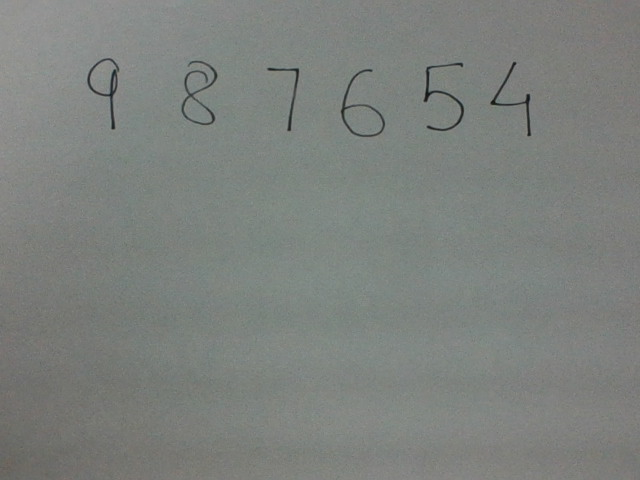 9 8 7 6 5 4